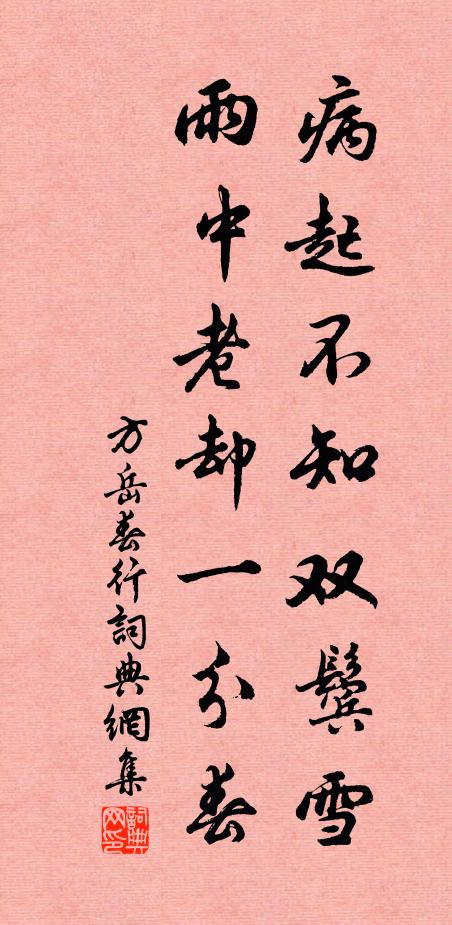 病起不知双鬓雪
雨中老却一分春
方岳春行詞典網集
詞典网印